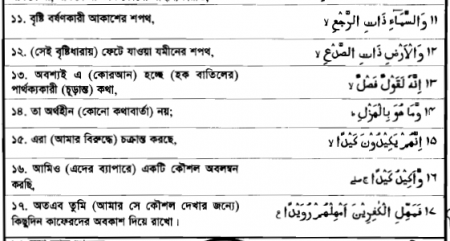 ১১. বৃষ্টি বর্ষণকারী আকাশের শপথ,
১১ وَالسَّمَآءِ ذَاتِ الرَّجْعِ ۙ
১২. (সেই বৃষ্টিধারায়) ফেটে যাওয়া যমীনের শপথ,
১২ وَالْاَرْضِ ذَاتِ الصَّدْعِ ۙ
১৩. অবশ্যই এ (কোরআন) হচ্ছে (হক বাতিলের)
পার্থক্যকারী (চূড়ান্ত) কথা,
১৩ اِنَّهٗ لَقَوْلٌ فَصْلٌ ۙ
১৪. তা অর্থহীন (কোনো কথাবার্তা) নয়;
১৪ وَّمَا هُوَ بِالْهَزْلِ ؕ
১৫. এরা (আমার বিরুদ্ধে) চক্রান্ত করছে,
১৫ اِنَّهُمْ يَكِيْدُوْنَ كَيْدًا ۙ
১৬. আমিও (এদের ব্যাপারে) একটি কৌশল অবলম্বন
করছি,
১৬ وَّاَكِيْدُ كَيْدًا ۚۖ
১৭. অতএব তুমি (আমার সে কৌশল দেখার জন্যে)
কিছুদিন কাফেরদের অবকাশ দিয়ে রাখো।
১৭ فَمَهِّلِ الْكٰفِرِيْنَ اَمْهِلْهُمْ رُوَيْدًا ۧ